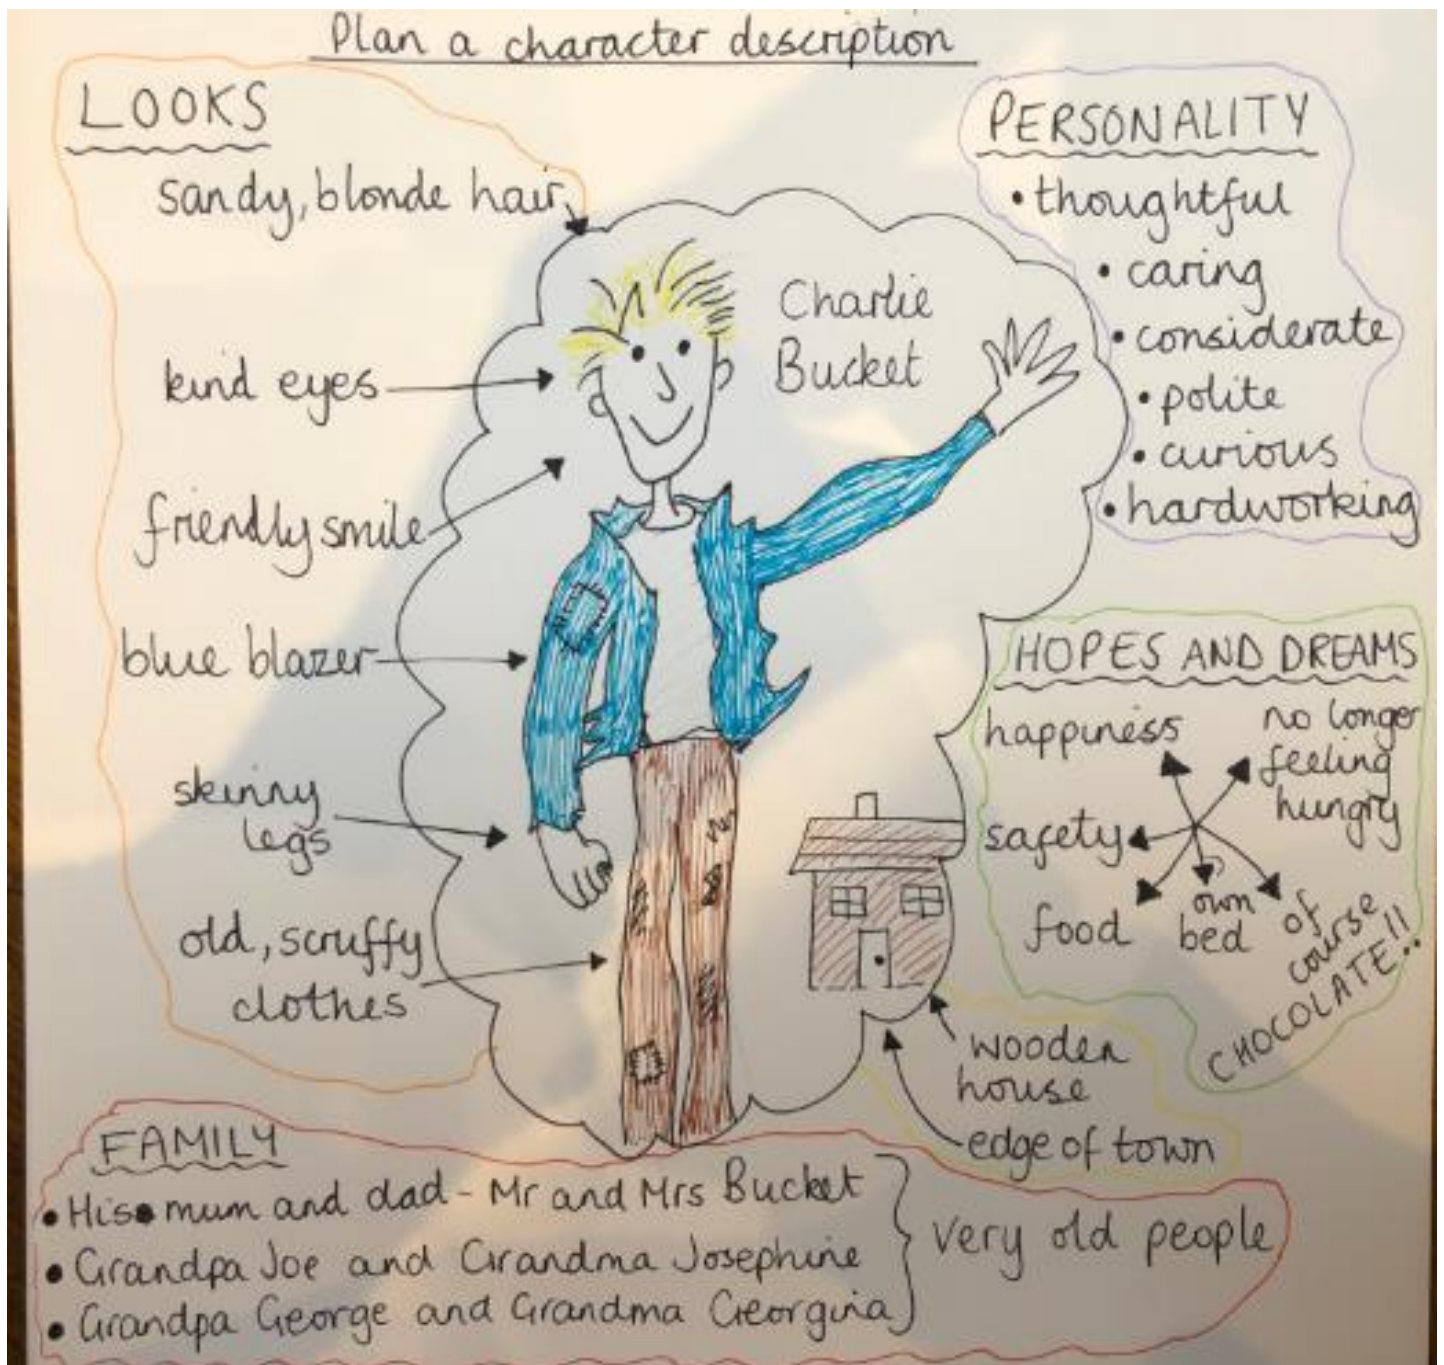 Plan a character description
LOOKS
sandy, blonde hair
kind eyes
friendly smile
blue blazer
skinny
legs
old, scruffy
clothes
Charlie
Bucket
PERSONALITY
• thoughtful
• caring
• considerate
• polite
• curious
• hardworking
HOPES AND DREAMS
happiness
no longer
feeling
hungry
safety
food
own
bed
of
course
CHOCOLATE!!
wooden
house
edge of town
FAMILY
• His mum and dad - Mr and Mrs Bucket
• Grandpa Joe and Grandma Josephine
• Grandpa George and Grandma Georgina
very old people